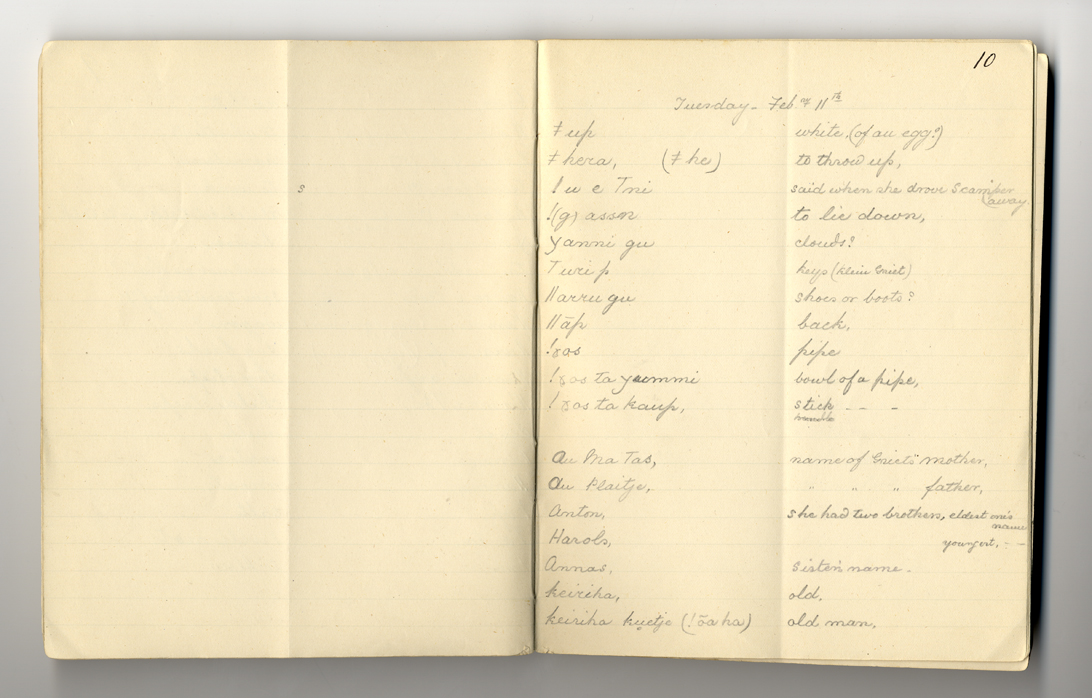 10
Tuesday - Feb ry 11th
ǂ up white. (of an egg?)
ǂ hera, (ǂ he) to throw up,
! u e Tni said when she drove scamper away.
s
!(g) assen to lie down,
yanni gu clouds?
Turi p keys (Klein Griet)
ǁarru gu shoes or boots?
ǁāp back.
!ɤos pipe
!ɤos ta yummi bowl of a pipe,
!ɤos ta kaup, stick - - -
Au Ma Tas, name of Griet's mother,
Au Flaitje, " " " father,
Anton, she had two brothers, eldest one's name
Harols, youngest. - -
Annas, sister's name.
keiriha, old.
keiriha kuetje (!ōa ha) old man,